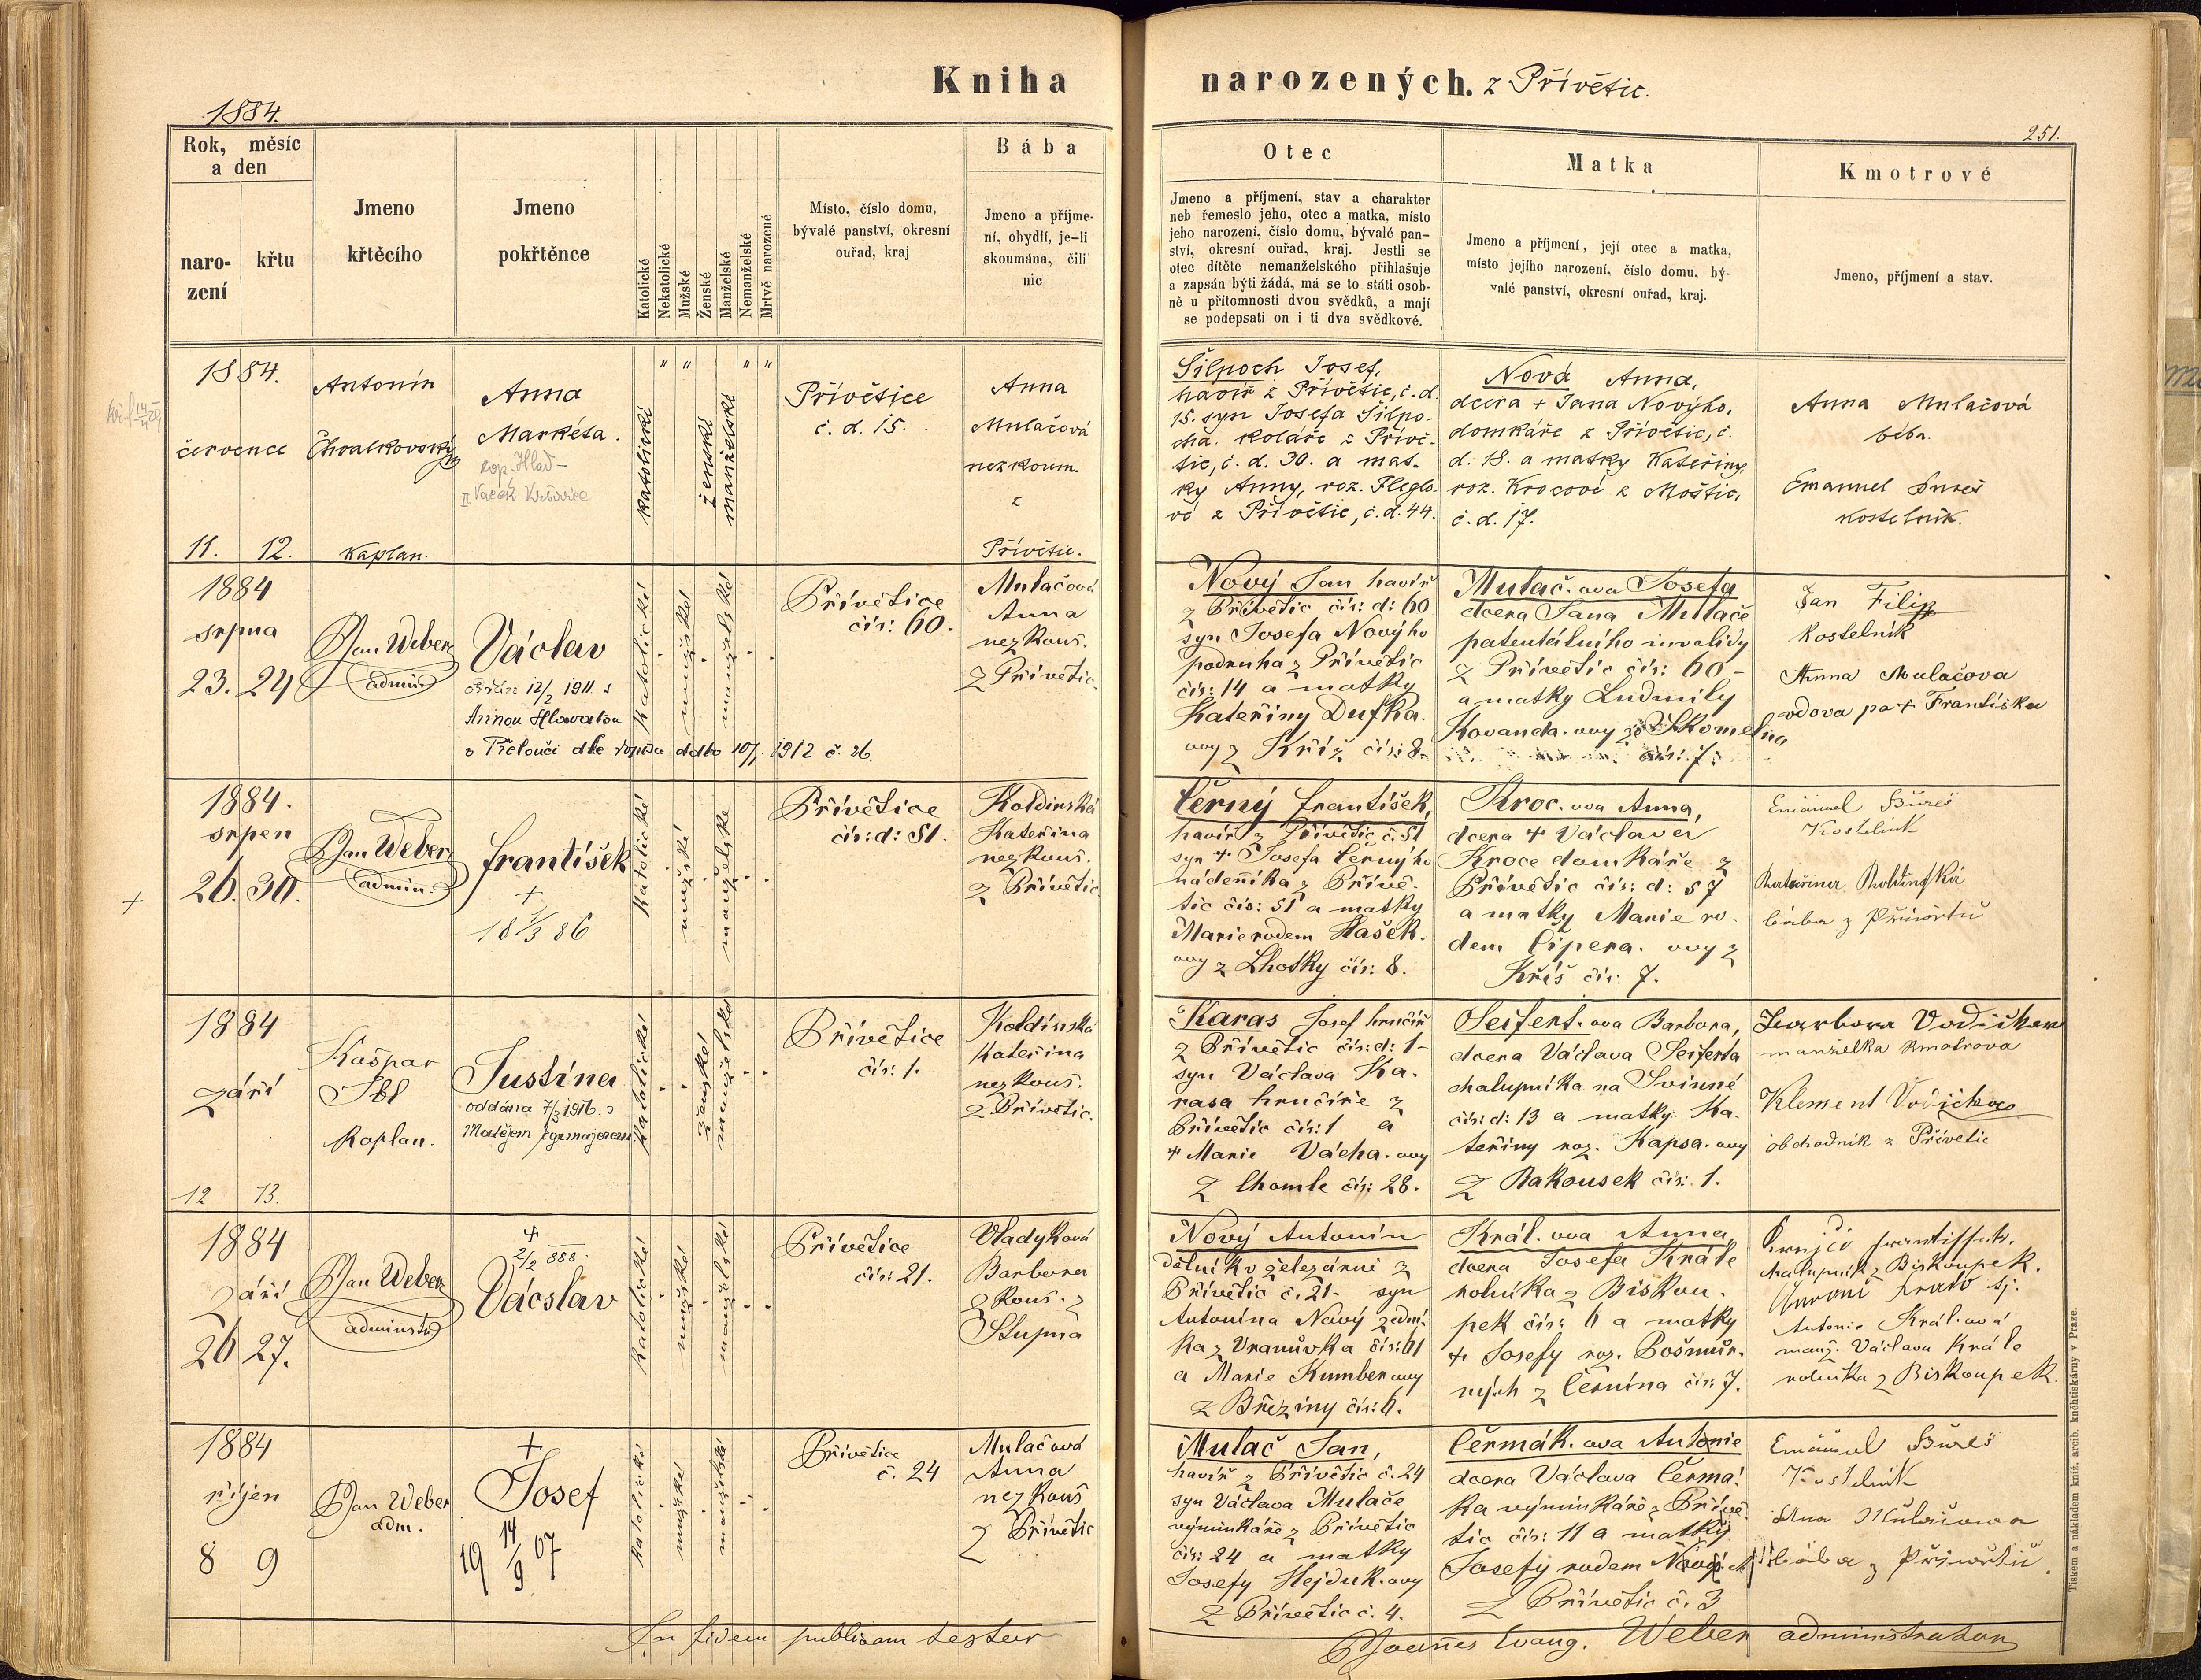 Kniha narozených. z Přívětic.
1884.
251.
Rok, měsíc
a den
naro-
zení
křtu
Jmeno
křtěcího
Jmeno
pokřtěnce
Katolické
Nekatolické
Mužské
Ženské
Manželské
Nemanželské
Mrtvě narozené
Místo, číslo domu,
bývalé panství, okresní
ouřad, kraj
Bába
Jmeno a příjme-
ní, obydlí, je-li
skoumána, čili
nic
Otec
Jmeno a příjmení, stav a charakter
neb řemeslo jeho, otec a matka, místo
jeho narození, číslo domu, bývalé pan-
ství, okresní ouřad, kraj. Jestli se
otec dítěte nemanželského přihlašuje
a zapsán býti žádá, má se to státi osob-
ně u přítomnosti dvou svědků, a mají
se podepsati on i ti dva svědkové.
Matka
Jmeno a příjmení, její otec a matka,
místo jejího narození, číslo domu, bý-
valé panství, okresní ouřad, kraj.
Kmotrové
Jmeno, příjmení a stav.
1884.
července
11. 12.
Antonín
Chvalkovský
Kaplan.
Anna
Markéta.
katolické
ženské
manželské
Přívětice
č. d. 15.
Anna
Mulačová
nezkoum.
z
Přívětic.
Šilpoch Josef,
havíř z Přívětic, č. d.
15. syn Josefa Šilpo-
cha. koláře z Přívě-
tic, č. d. 30. a mat-
ky Anny, roz. Fleglo-
vé z Přívětic, č. d. 44.
Nová Anna,
dcera + Jana Nového,
domkáře z Přívětic, č.
d. 18. a matky Kateřiny,
roz. Krocové z Moštic,
č. d. 17.
Anna Mulačová
bába.
Emanuel Bureš
kostelník.
1884
srpna
23. 24
Jan Weber
admin
Václav
12/2 1911 s
Annou Hlavatou
v Přelouči dle dddto 10/1 1912 č 26
katolické
mužské
manželské
Přívětice
čís: 60.
Mulačová
Anna
nezkouš.
z Přívětic.
Nový Jan havíř
z Přívětic čís: d: 60
syn Josefa Nového
podruha z Přívětic
čís: 14 a matky
Kateřiny Dufka.
ovy z Kříž čís: 8.
Mulač.ova Josefa
dcera Jana Mulače
patentálního invalidy
z Přívětic čís: 60-
a matky Ludmily
Kovanda.ovy ze Skomelna
čís: 7.
Jan Filip
kostelník
Anna Mulačova
vdova po + Františku
1884.
srpen
26. 30.
Jan Weber
admin.
František
+
18 1/3 86
katolické
mužské
manželské
Přívětice
čís: d: 51.
Koldinská
Kateřina
nezkouš.
z Přívětic
Černý František,
havíř z Přívětic č. 51
syn + Josefa Černýho
nádeníka z Přívě-
tic čís: 51 a matky
Marie rodem Hašek.
ovy z Lhotky čís: 8.
Kroc.ova Anna,
dcera + Václava
Kroce domkáře z
Přívětic čís: d: 57
a matky Marie ro-
dem Čipera.ovy z
Kříš čís: 7.
Emanuel Bureš
Kostelník
Kateřina Koldinská
bába z Přívětic
1884
září
12 13.
Kašpar
Kaplan.
Justina
oddána 7/2 1916 s
Matějem
katolické
ženské
manželské
Přívětice
čís: 1.
Koldinská
Kateřina
nezkouš.
z Přívětic.
Karas Josef hrnčíř
z Přívětic čís: d: 1-
syn Václava Ka-
rasa hrnčíře z
Přívětic čís: 1 a
+ Marie Vácha.ovy
z Chomle čís: 28.
Seifert.ova Barbora,
dcera Václava Seiferta
chalupníka na Svinné
čís: d: 13 a matky Ka-
teřiny roz. Kapsa.ovy
z Rakousek čís: 1.
Barbora Vodičkova
manželka kmotrova
Klement Vodička
obchodník z Přívětic
1884
září
26 27.
Jan Weber
administr
+
2/2 888.
Vácslav
katolické
mužské
manželské
Přívětice
čís: 21.
Vladyková
Barbora
zkouš. z
Stupna
Nový Antonín
dělník v železárně z
Přívětic č. 21. syn
Antonína Nový zední-
ka z Vranůvka čís: 61
a Marie Kumber.ovy
z Březiny čís: 6.
Král.ova Anna
dcera Josefa Krále
rolníka z Biskou-
pek čís: 6 a matky
+ Josefy roz.
z Černína čís: 7.
chalupník z Biskoupek.
Antonie Král.ová
manž. Václava Krále
rolníka z Biskoupek.
1884
říjen
8 9
Jan Weber
adm.
+
Josef
19 14/9 07
katolické
mužské
manželské
Přívětice
č. 24
Mulačová
Anna
nezkouš
z Přívětic
Mulač Jan,
havíř z Přívětic č. 24
syn Václava Mulače
výminkáře z Přívětic
čís: 24 a matky
Josefy Hejduk.ovy
z Přívětic č. 4.
Čermák.ova Antonie
dcera Václava Čermá-
ka výminkáře z Přívě-
tic čís: 11 a matky
Josefy rodem Nových
z Přívětic č. 3
Emanuel Bureš
Kostelník
Ana Mulačova
bába z Přívětic
In fidem publicam testor
Joannes Evang. Weber administrator
Tiskem a nákladem kníž. arcib. knihtiskárny v Praze.